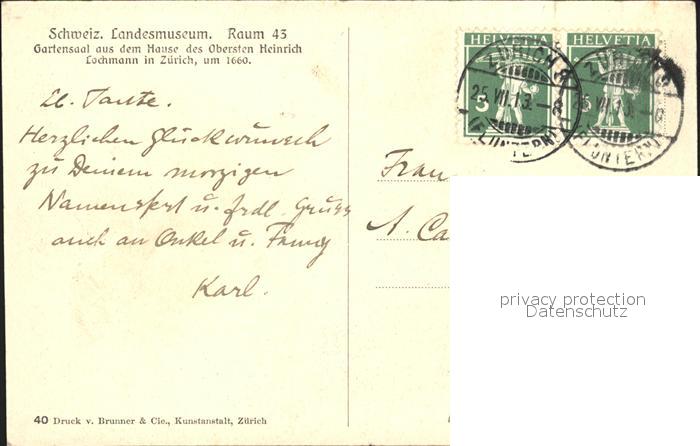 Schweiz. Landesmuseum. Raum 43
Gartensaal aus dem Hause des Obersten Heinrich
Lochmann in Zürich, um 1660.
HELVETIA HELVETIA
5
ZÜRICH 8
25.VII.13.–8
(FLUNTERN)
ZÜRICH 8
25.VII.13.–8
(FLUNTERN)
Lb. Tante.
Herzlichen Glückwunsch
zu Deinem morgigen
Namensfest u. frdl. Gruss
auch an Onkel u. Fanny
Karl.
Frau
A. Ca
privacy protection
Datenschutz
40 Druck v. Brunner & Cie., Kunstanstalt, Zürich